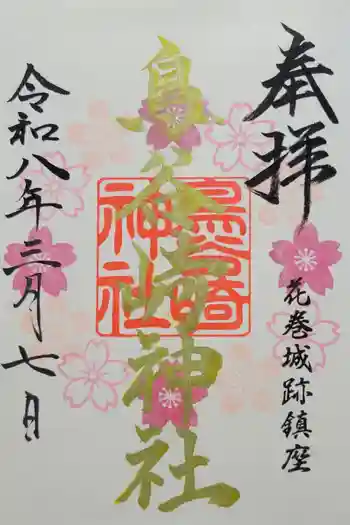 奉拝
花巻城跡鎮座
鳥谷崎神社
鳥谷崎
神社
令和八年三月七日